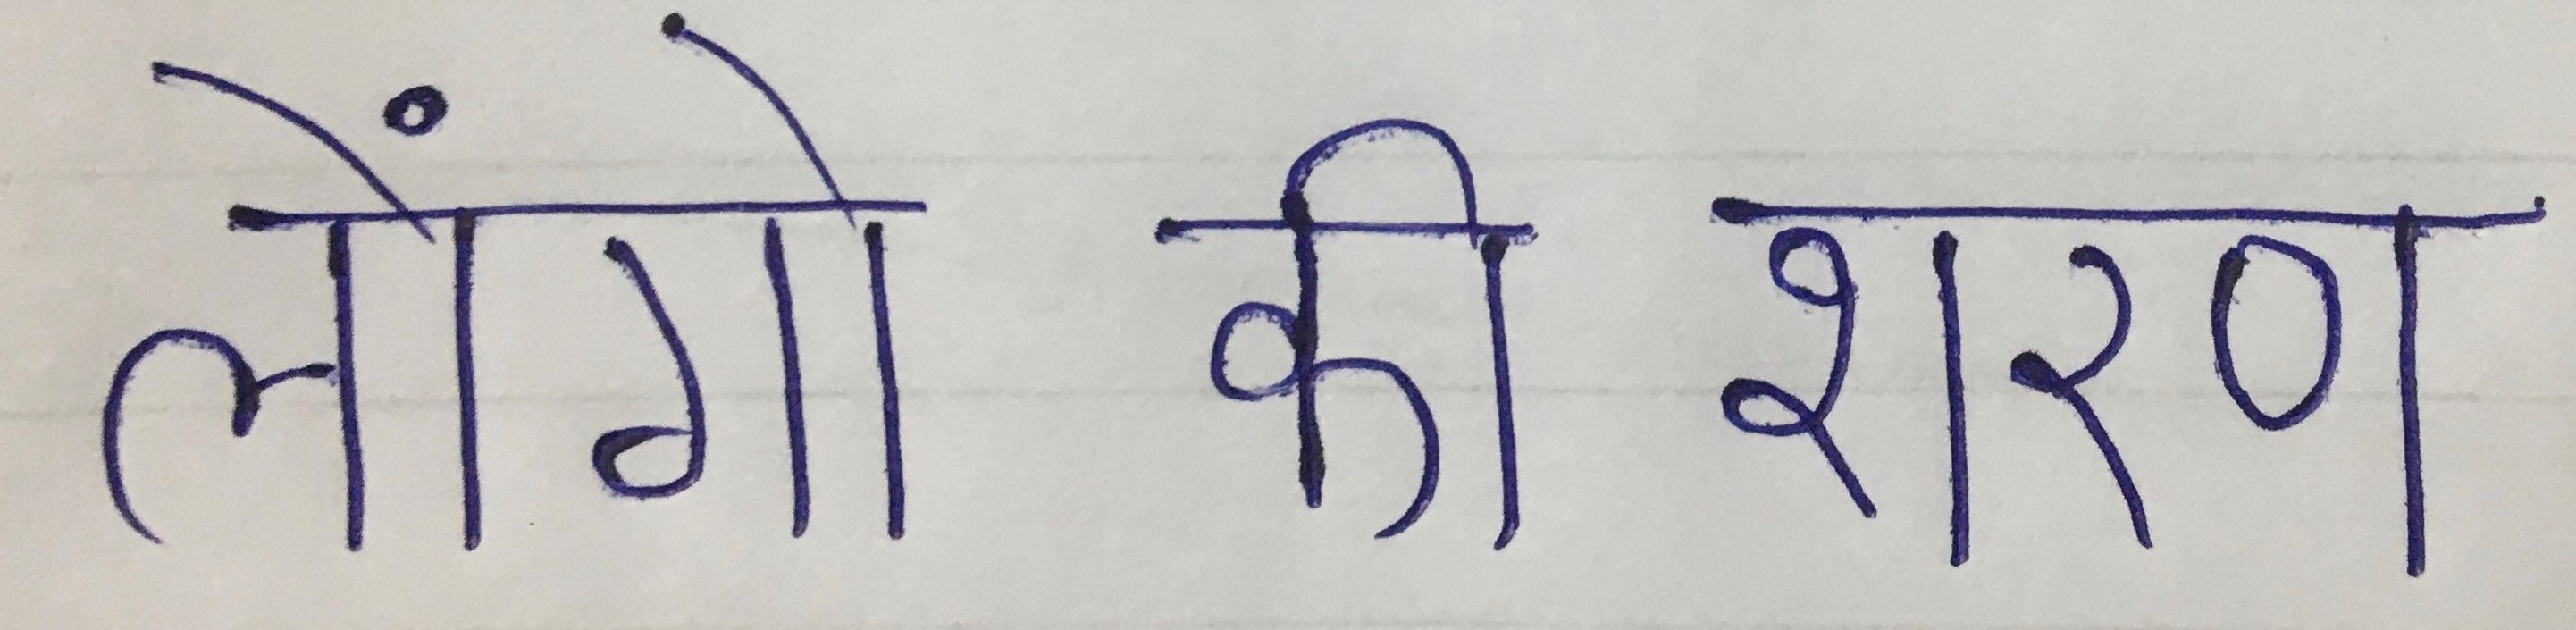 लोंगो की शरण